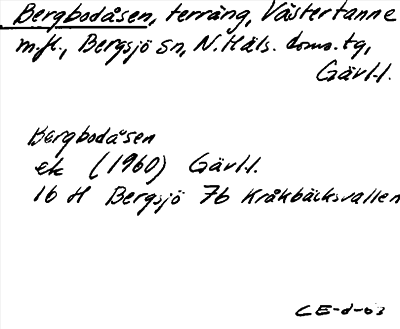 Bergbodåsen, terräng, Västertanne
m.fl., Bergsjö sn, N.Häls. doms. tg,
Gävl.l.
Bergbodåsen
ek (1960) Gävl.l.
16 H Bergsjö 7b Kråkbäcksvallen
CE-d-63